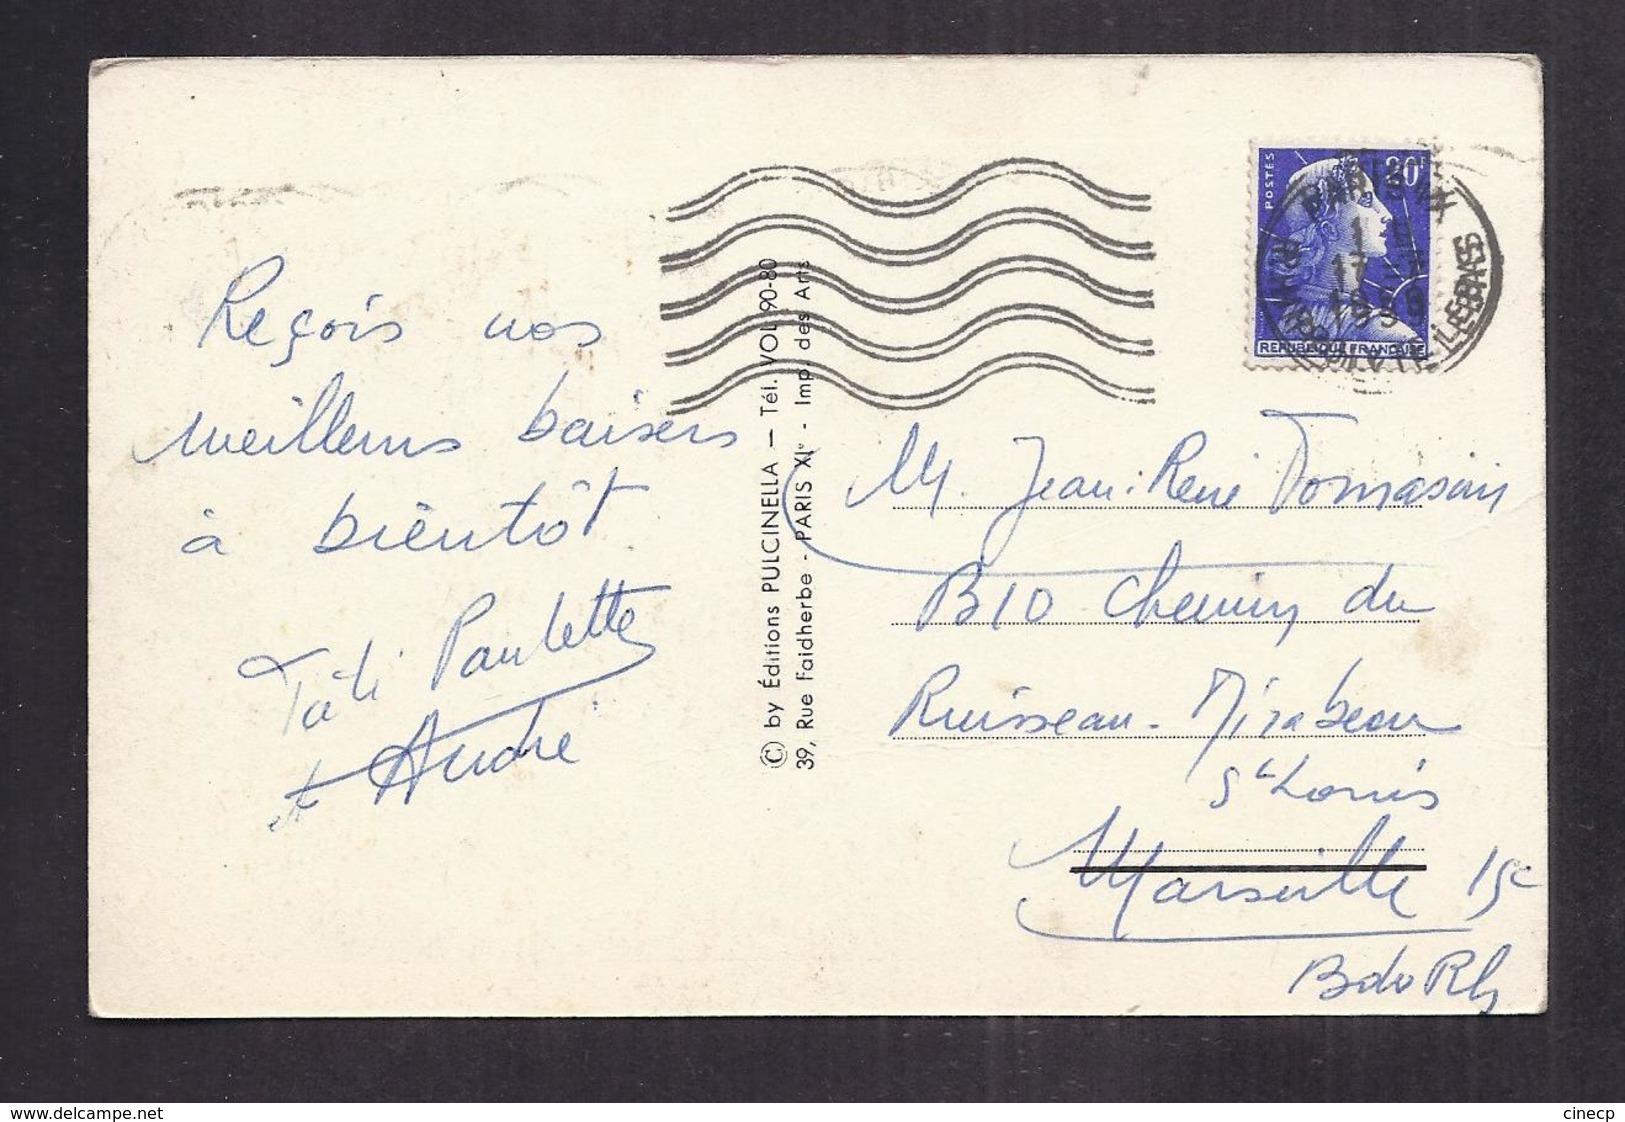 Reçois nos
meilleurs baisers
à bientôt
Tati Paulette
et André
© by Éditions PULCINELLA — Tél. VOL 90-80
39, Rue Faidherbe - PARIS XIe - Imp. des Arts
POSTES
20F
REPUBLIQUE FRANÇAISE
PARIS
17
1959
M. Jean-René Tomasini
B10 Chemin du
Ruisseau-Mirabeau
St Louis
Marseille 15e
B du Rh
www.delcampe.net
cinecp